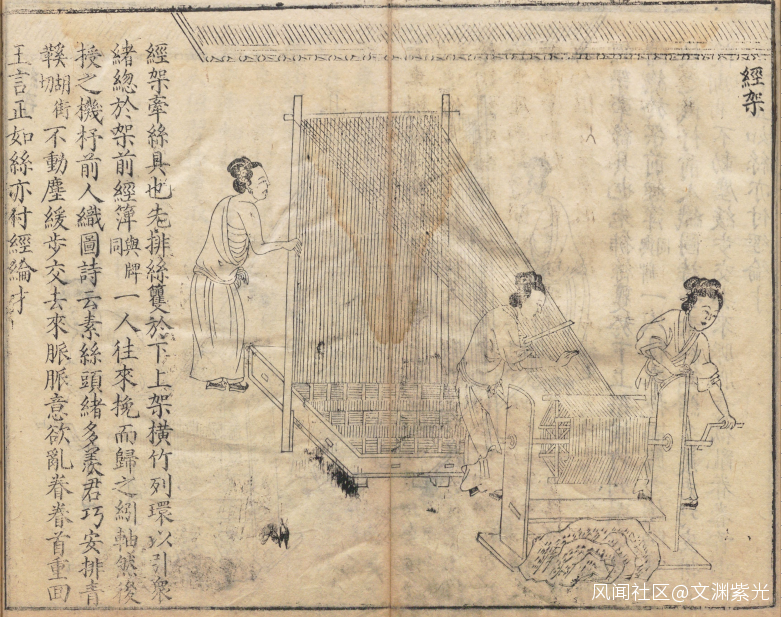 經架
經架牽絲具也先排絲籰於下上架橫竹列環以引眾
緒總於架前經簰與牌同一人往來挽而歸之紖軸然後
授之機杼前人織圖詩云素絲頭緒多羨君巧安排青
鞵蹋街不動塵緩步交去來脈脈意欲亂眷眷首重回
王言正如絲亦付經綸才
风闻社区@文渊紫光